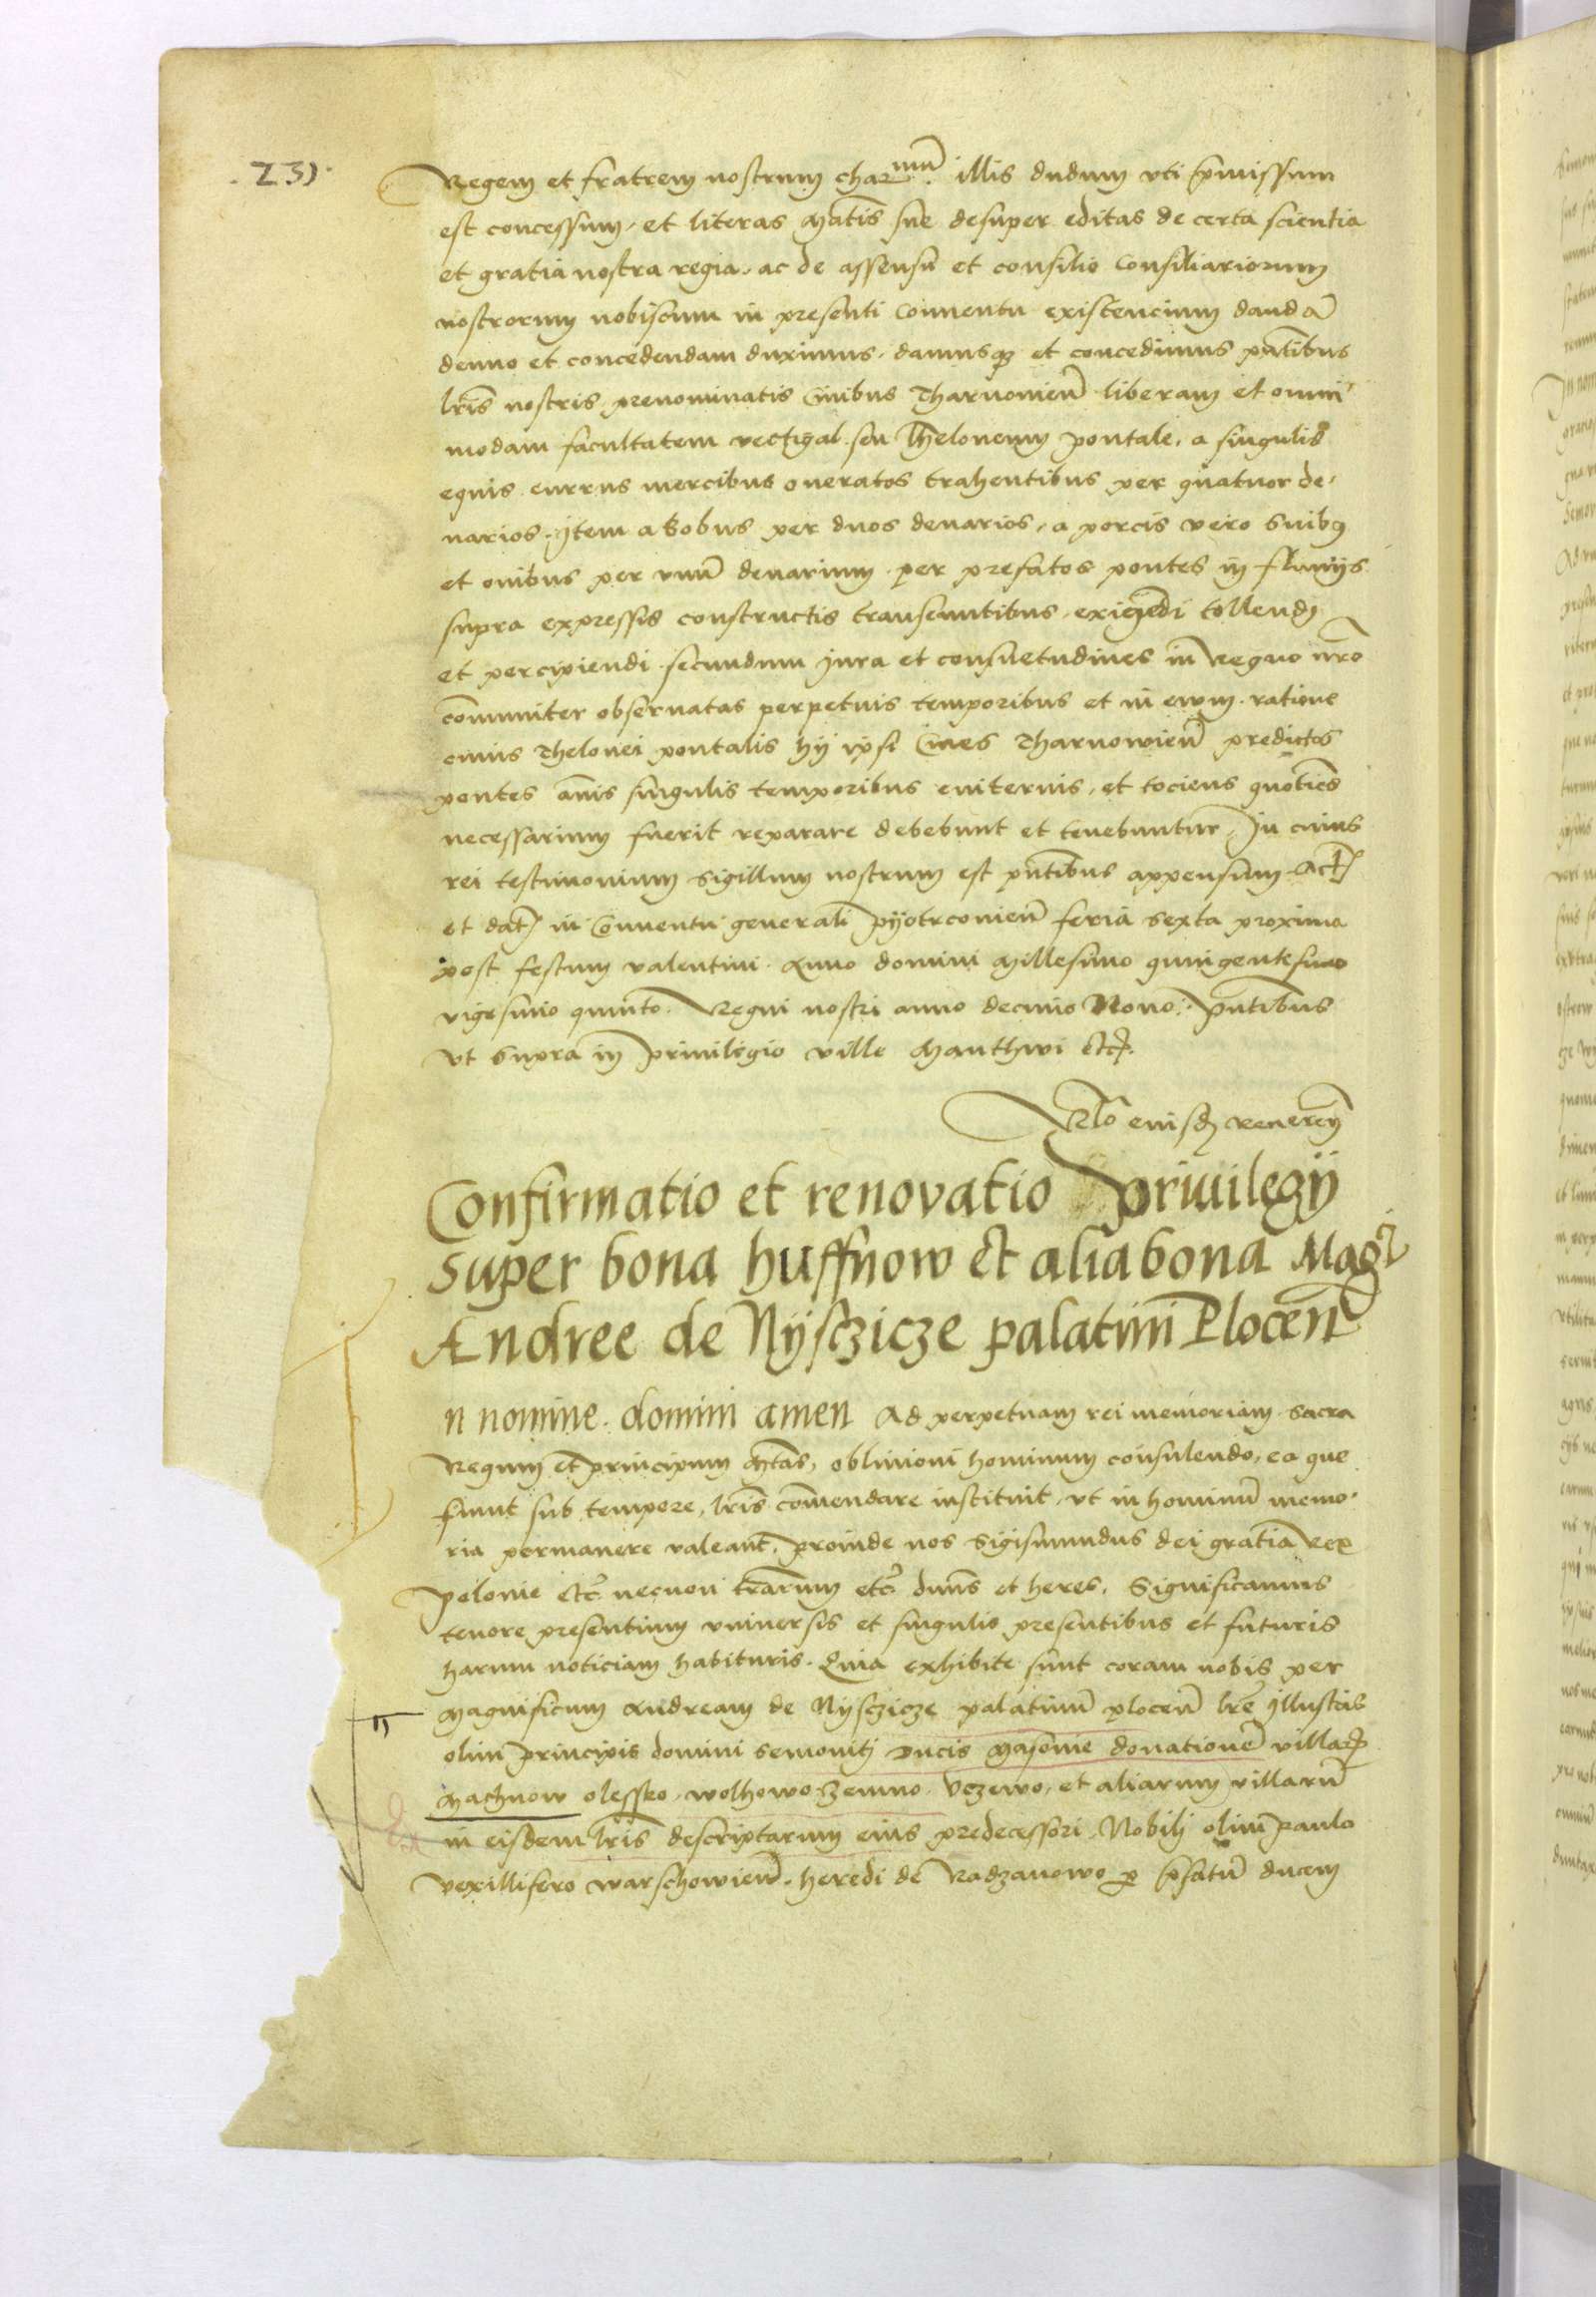 . 231.
Regem et fratrem nostrum char mu͂ illis dudum vti p͂missum
est concessum, et literas Ma͂tis sue desuper editas de certa scientia
et gratia nostra regia, ac de assensu et consilio Consiliariorum
nostrorum nobiscum in presenti Conuentu existencium danda͂
denuo et concedendam duximus, damusq₃ et concedimus pn͂tibus
lr͂is nostris prenominatis Ciuibus Tharnouien͂ liberam et omni
modam facultatem vectigal seu Theloneum pontale, a singulis
equis currus mercibus oneratos trahentibus per quatuor de
narios, Item a bobus per duos denarios, a porcis vero suibus
et ouibus per vnu͂ denarium per prefatos pontes in fluuijs
supra expressis constructis transeuntibus, exige͂di tollendj
et percipiendi secundum Jura et consuetudines in Regno nr͂o
co͂muniter obseruatas perpetuis temporibus et in ewm. ratione
cuius Thelonei pontalis hij ipsi Ciues Tharnowien͂ predictos
pontes a͂nis singulis temporibus euiternis, et tociens quotie͂s
necessarium fuerit reparare debebunt et tenebuntur, In cuius
rei testimonium Sigillum nostrum est pn͂tibus appensum. Act͂
et dat͂ in Conuentu generali Pyotrcouien͂ feria sexta proxima
post festum valentini. Anno domini Millesimo quingentesimo
vigesimo quinto. Regni nostri anno decimo Nono. Pn͂tibus
vt supra in Priuilegio ville Manthwi etc͂.
Rl͂o eiusd͂ Reueren͂
Confirmatio et renovatio Priuilegij
super bona huffnow et alia bona Mag͂ci
Andree de Nijsczicze palatini Plocen͂
n nomine. domini amen Ad perpetuam rei memoriam. Sacra
Regum et Principum M͂tas, obliuioni hominum consulendo, ea que
fiunt sub tempore, lr͂is co͂mendare instituit, vt in hominu͂ memo
ria permanere valeant, Proinde nos Sigismundus dei gratia Rex
Polonie etc͂ necnon tr͂arum etc͂ dn͂us et heres. Significamus
tenore presentium vniuersis et singulis presentibus et futuris
harum noticiam habituris. Quia exhibite sunt coram nobis per
Magnificum Andream de Nijsczicze palatinu͂ plocen͂ lr͂e Illustris
olim Principis domini Semouitj Ducis Masouie donatione͂ villar͂
Machnow olessko, wolhowo Zemno. Vczewo, et aliarum villaru͂
in eisdem lr͂is descriptarum eius predecessori. Nobilj olim Paulo
Vexillifero warschowien͂, heredi de Radzanowo p p͂fatu͂ ducem